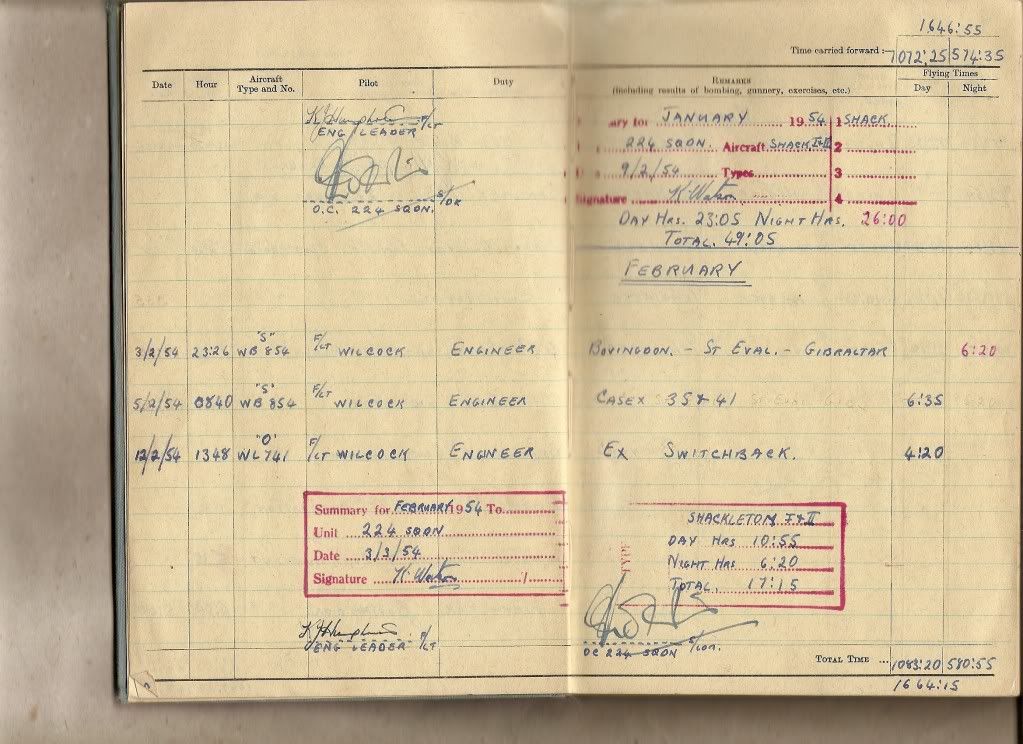 1646:55
Time carried forward :— 1072:25 574:35
Date Hour Aircraft Type and No. Pilot Duty REMARKS (including results of bombing, gunnery, exercises, etc.) Flying Times Day Night
F/LT
ENG LEADER
S/LDR
O.C. 224 SQDN.
ary for JANUARY 1954 1 SHACK.
224 SQDN. Aircraft SHACK I+II 2
9/2/54 Types 3
Signature K. Watson 4
DAY HRS. 23:05 NIGHT HRS. 26:00
TOTAL. 49:05
FEBRUARY
3/2/54 23:26 "S" WB 854 F/LT WILCOCK ENGINEER BOVINGDON. - ST EVAL. - GIBRALTAR 6:20
5/2/54 0840 "S" WB 854 F/LT WILCOCK ENGINEER CASEX 35 & 41 6:35
12/2/54 1348 "O" WL 741 F/LT WILCOCK ENGINEER EX SWITCHBACK. 4:20
Summary for FEBRUARY 1954 To
Unit 224 SQDN
Date 3/3/54
Signature K. Watson
TYPE
SHACKLETON I+II
DAY HRS 10:55
NIGHT HRS 6:20
TOTAL. 17:15
F/LT
ENG LEADER
OC 224 SQDN S/LDR.
TOTAL TIME ... 1083:20 580:55
1664:15